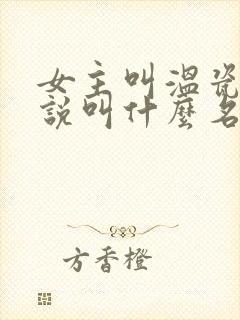 女主叫溫瓷
說叫什麼名
方香橙